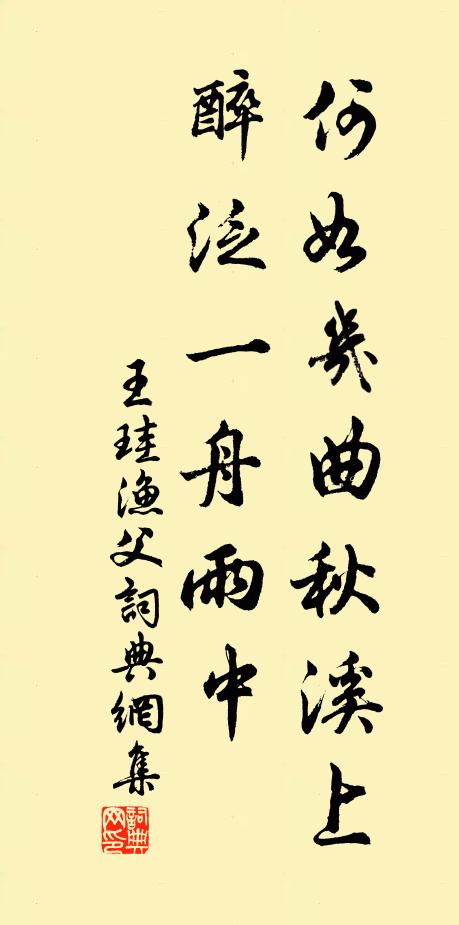 何如幾曲秋溪上
醉泛一舟雨中
王珪漁父詞典網集
詞典网印